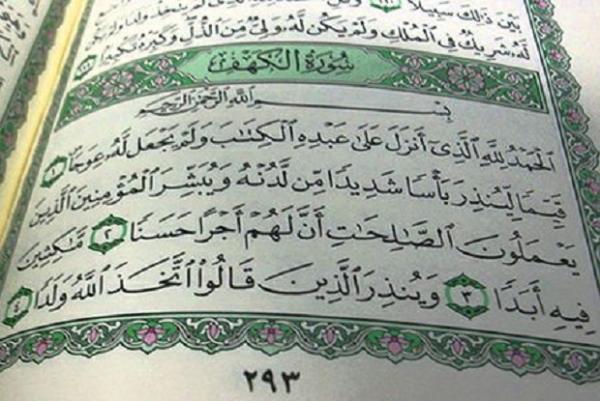 بَيْنَ ذَٰلِكَ سَبِيلًا ﴿١١٠﴾ وَقُلِ
لَّهُۥ شَرِيكٌ فِى ٱلْمُلْكِ وَلَمْ يَكُن لَّهُۥ وَلِىٌّ مِّنَ ٱلذُّلِّ وَكَبِّرْهُ تَكْبِيرًا ﴿١١١﴾
سُورَةُ الكَهْفِ
بِسْمِ ٱللَّهِ ٱلرَّحْمَٰنِ ٱلرَّحِيمِ
ٱلْحَمْدُ لِلَّهِ ٱلَّذِىٓ أَنزَلَ عَلَىٰ عَبْدِهِ ٱلْكِتَٰبَ وَلَمْ يَجْعَل لَّهُۥ عِوَجَا ۜ ﴿١﴾
قَيِّمًا لِّيُنذِرَ بَأْسًا شَدِيدًا مِّن لَّدُنْهُ وَيُبَشِّرَ ٱلْمُؤْمِنِينَ ٱلَّذِينَ
يَعْمَلُونَ ٱلصَّٰلِحَٰتِ أَنَّ لَهُمْ أَجْرًا حَسَنًا ﴿٢﴾ مَّٰكِثِينَ
فِيهِ أَبَدًا ﴿٣﴾ وَيُنذِرَ ٱلَّذِينَ قَالُوا۟ ٱتَّخَذَ ٱللَّهُ وَلَدًا ﴿٤﴾
٢٩٣